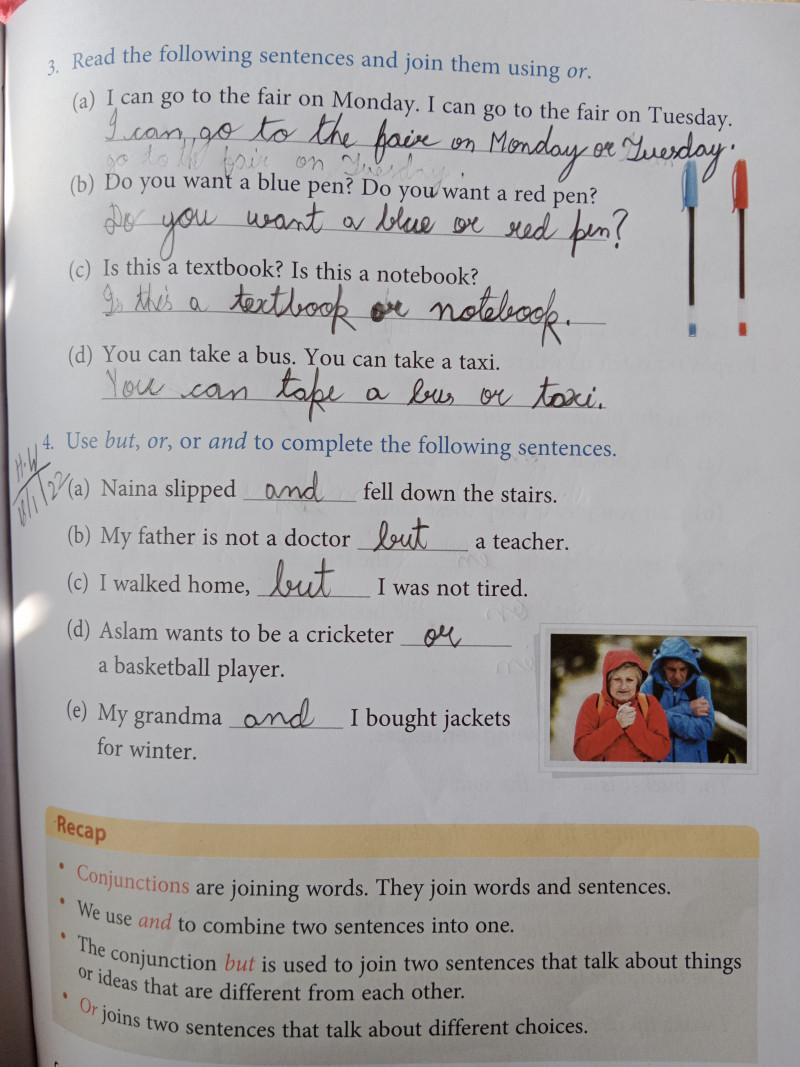 3. Read the following sentences and join them using or.
(a) I can go to the fair on Monday. I can go to the fair on Tuesday.
I can go to the faire on Monday or Tuesday.
go to the fair on Tuesday.
(b) Do you want a blue pen? Do you want a red pen?
Do you want a blue or red pen?
(c) Is this a textbook? Is this a notebook?
Is this a textbook or notebook.
(d) You can take a bus. You can take a taxi.
You can take a bus or taxi.
4. Use but, or, or and to complete the following sentences.
H.W
(a) Naina slipped and fell down the stairs.
(b) My father is not a doctor but a teacher.
(c) I walked home, but I was not tired.
(d) Aslam wants to be a cricketer or
a basketball player.
(e) My grandma and I bought jackets
for winter.
Recap
• Conjunctions are joining words. They join words and sentences.
• We use and to combine two sentences into one.
• The conjunction but is used to join two sentences that talk about things
or ideas that are different from each other.
• Or joins two sentences that talk about different choices.